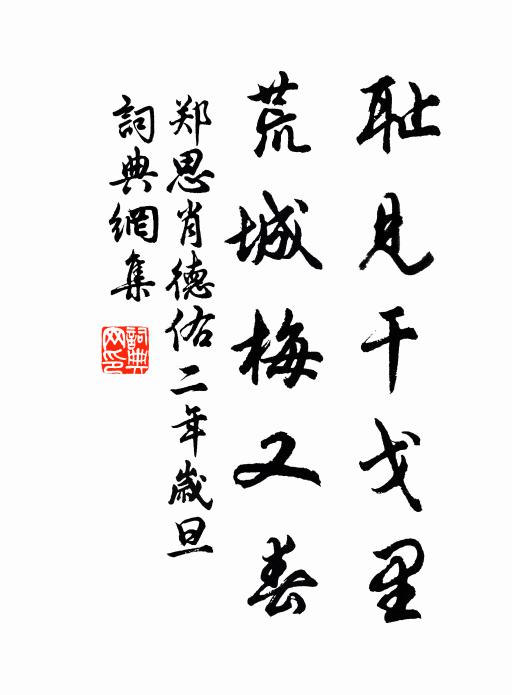 耻见干戈里
荒城梅又春
郑思肖德佑二年岁旦
詞典網集
詞典网印